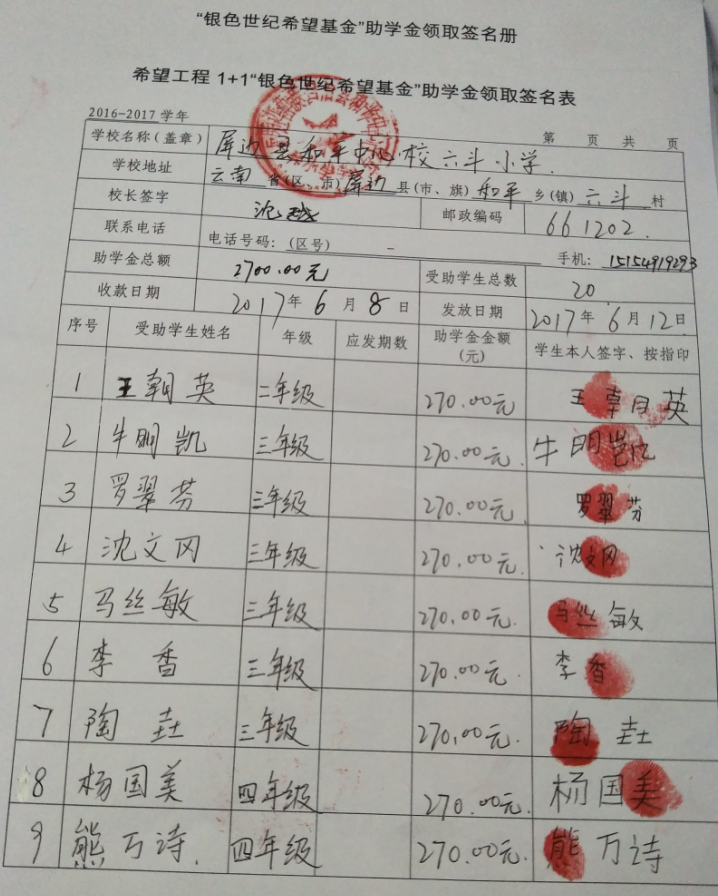 “银色世纪希望基金”助学金领取签名册
希望工程 1+1“银色世纪希望基金”助学金领取签名表
2016-2017 学年 第 页 共 页
学校名称（盖章） 屏边县和平中心校六斗小学.
学校地址 云南 省(区、市) 屏边 县(市、旗) 和平 乡(镇) 六斗 村
校长签字 邮政编码 661202.
联系电话 电话号码:(区号) － 手机: 15154919293
助学金总额 2700.00元 受助学生总数 20
收款日期 2017年6月8日 发放日期 2017年6月12日
序号 受助学生姓名 年级 应发期数 助学金金额(元) 学生本人签字、按指印
1 王朝英 二年级 270.00元 王朝英
2 牛明凯 三年级 270.00元. 牛明
3 罗翠芬 三年级 270.00元 罗翠芬
4 沈文冈 三年级 270.00元. 沈文冈
5 马丝敏 三年级 270.00元. 马丝敏
6 李香 三年级 270.00元. 李香
7 陶垚 三年级 270.00元. 陶垚
8 杨国美 四年级 270.00元. 杨国美
9 熊万诗. 四年级 270.00元. 熊万诗